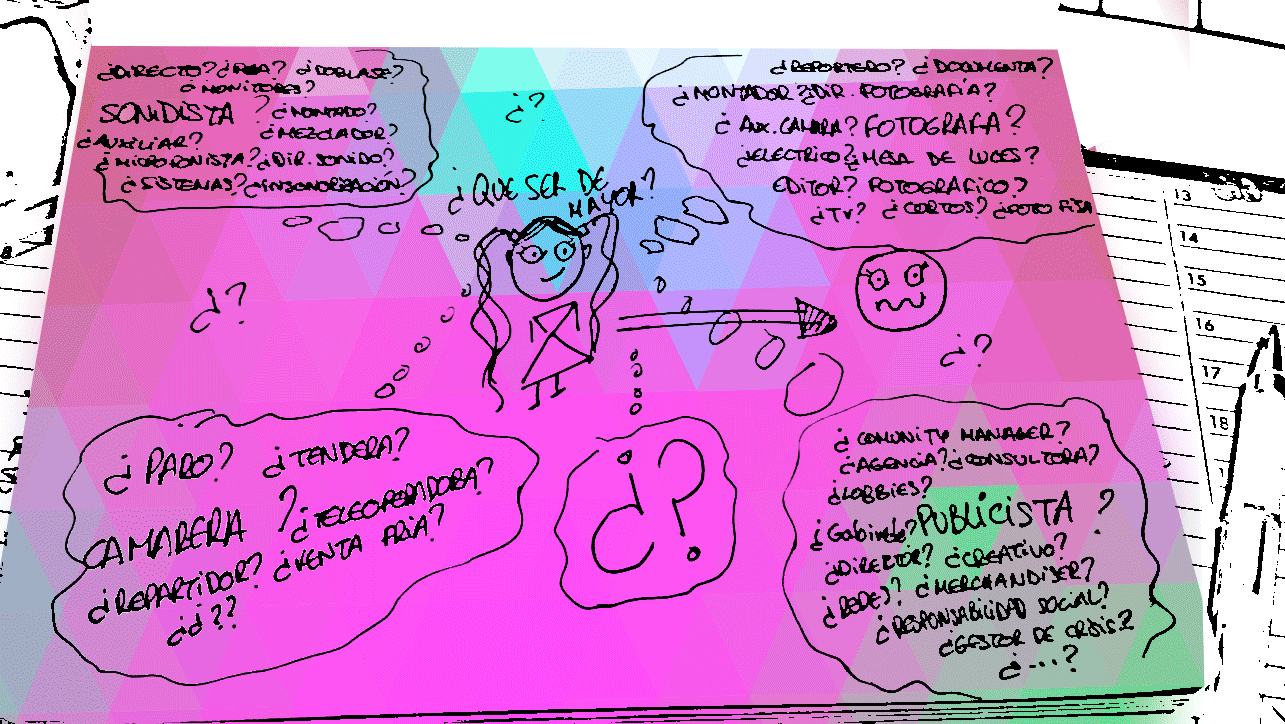 ¿DIRECTO? ¿RRA? ¿DOBLAJE?
¿MONITORES?
SONIDISTA ? ¿MONTADO?
¿MEZCLADOR?
¿AUXILIAR?
¿MICROFONISTA? ¿DIR. SONIDO?
¿SISTEMAS? ¿INSONORIZACIÓN?
¿?
¿REPORTERO? ¿DOCUMENTA?
¿MONTADOR? ¿DIR. FOTOGRAFÍA?
¿AUX. CAMARA? FOTOGRAFA?
¿ELECTRICO? ¿MESA DE LUCES?
EDITOR? FOTOGRAFICO?
¿TV? ¿CORTOS? ¿FOTO FIJA
¿QUE SER DE
MAYOR?
¿?
¿?
¿PARO? ¿TENDERA?
CAMARERA ? ¿TELEOPERADORA?
¿REPARTIDOR? ¿VENTA FRIA?
¿¿??
¿?
¿COMUNITY MANAGER?
¿AGENCIA? ¿CONSULTORA?
¿LOBBIES?
¿Gabinete? PUBLICISTA ?
¿DIRECTOR? ¿CREATIVO?
¿REDES? ¿MERCHANDISER?
¿RESPONSABILIDAD SOCIAL?
¿GESTOR DE CRISIS?
¿...?
8
13
14
15
16
17
18